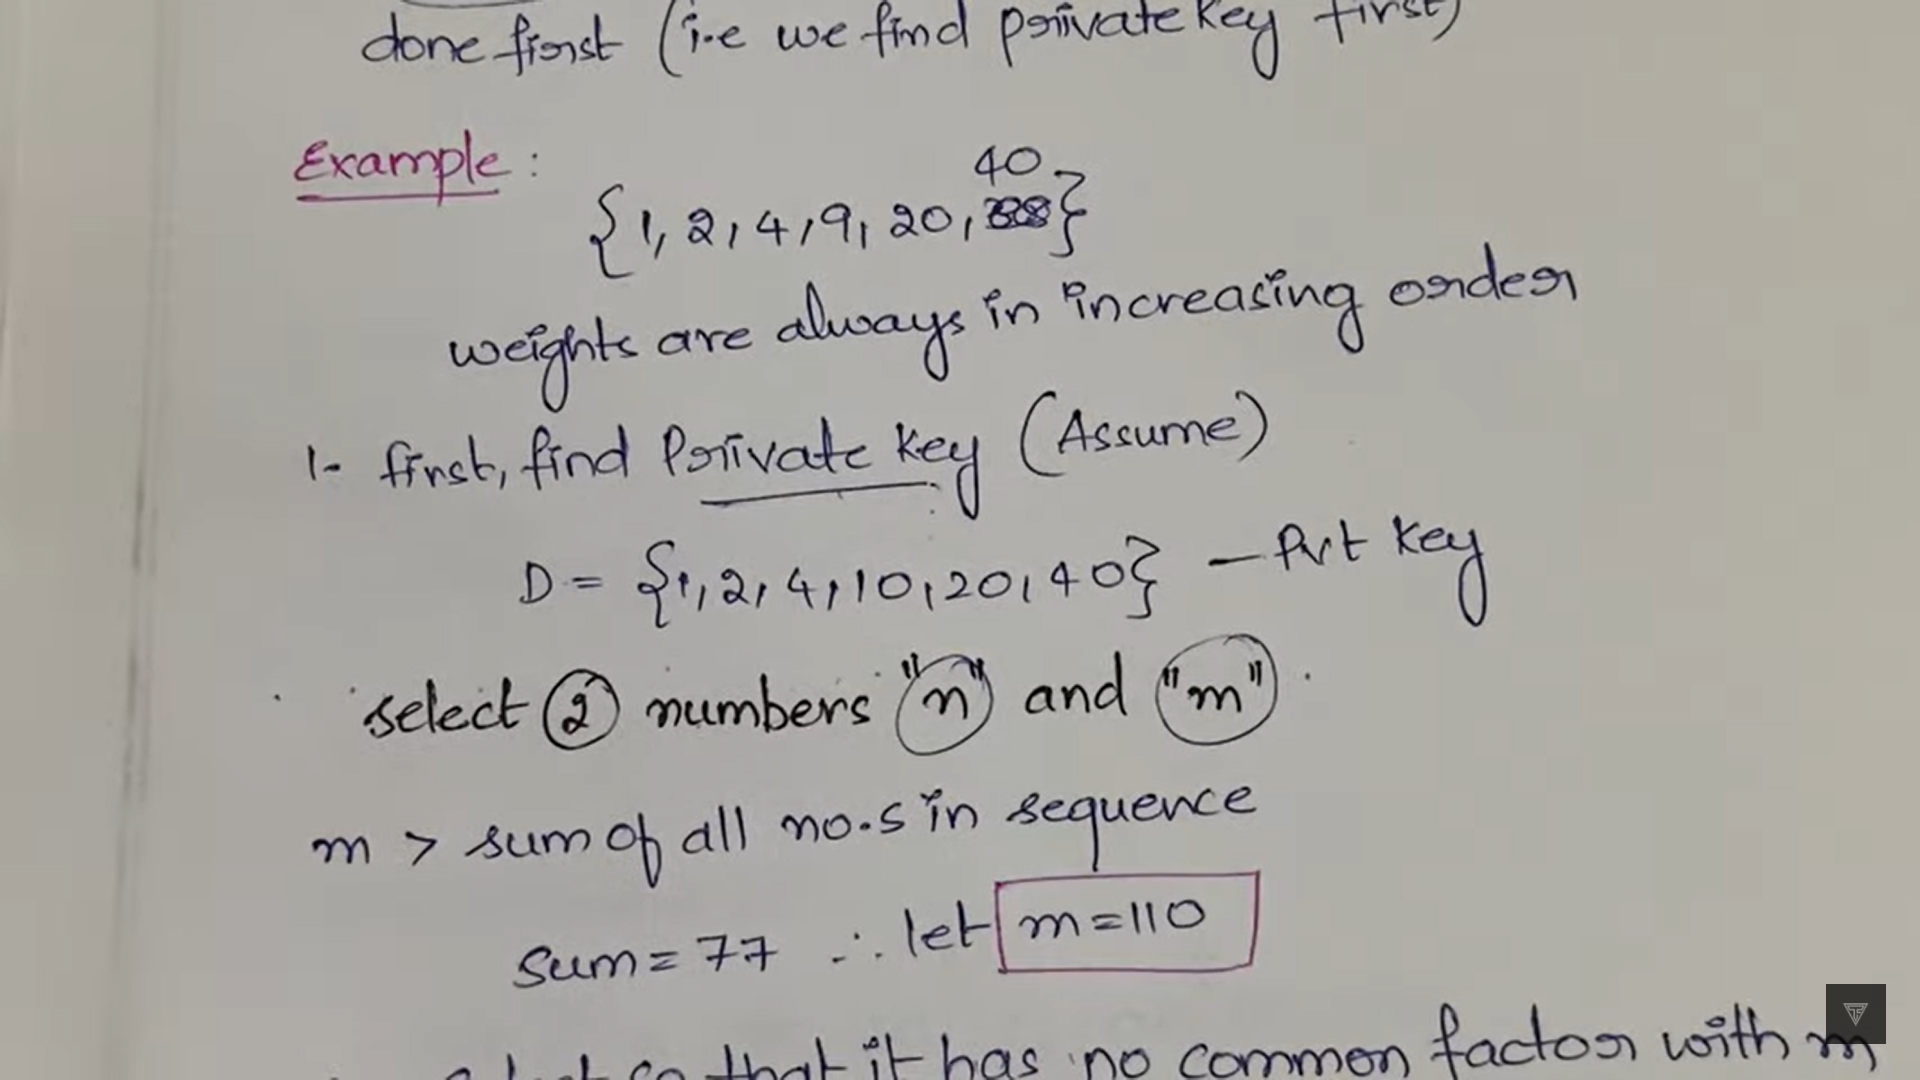 done first (i.e we find private key first)
Example :
40
{1, 2, 4, 9, 20, }
weights are always in increasing order
1- first, find Private key (Assume)
D = {1, 2, 4, 10, 20, 40} — Pvt key
select 2 numbers "n" and "m".
m > sum of all no.s in sequence
sum = 77 ∴ let m = 110
so that it has no common factor with m